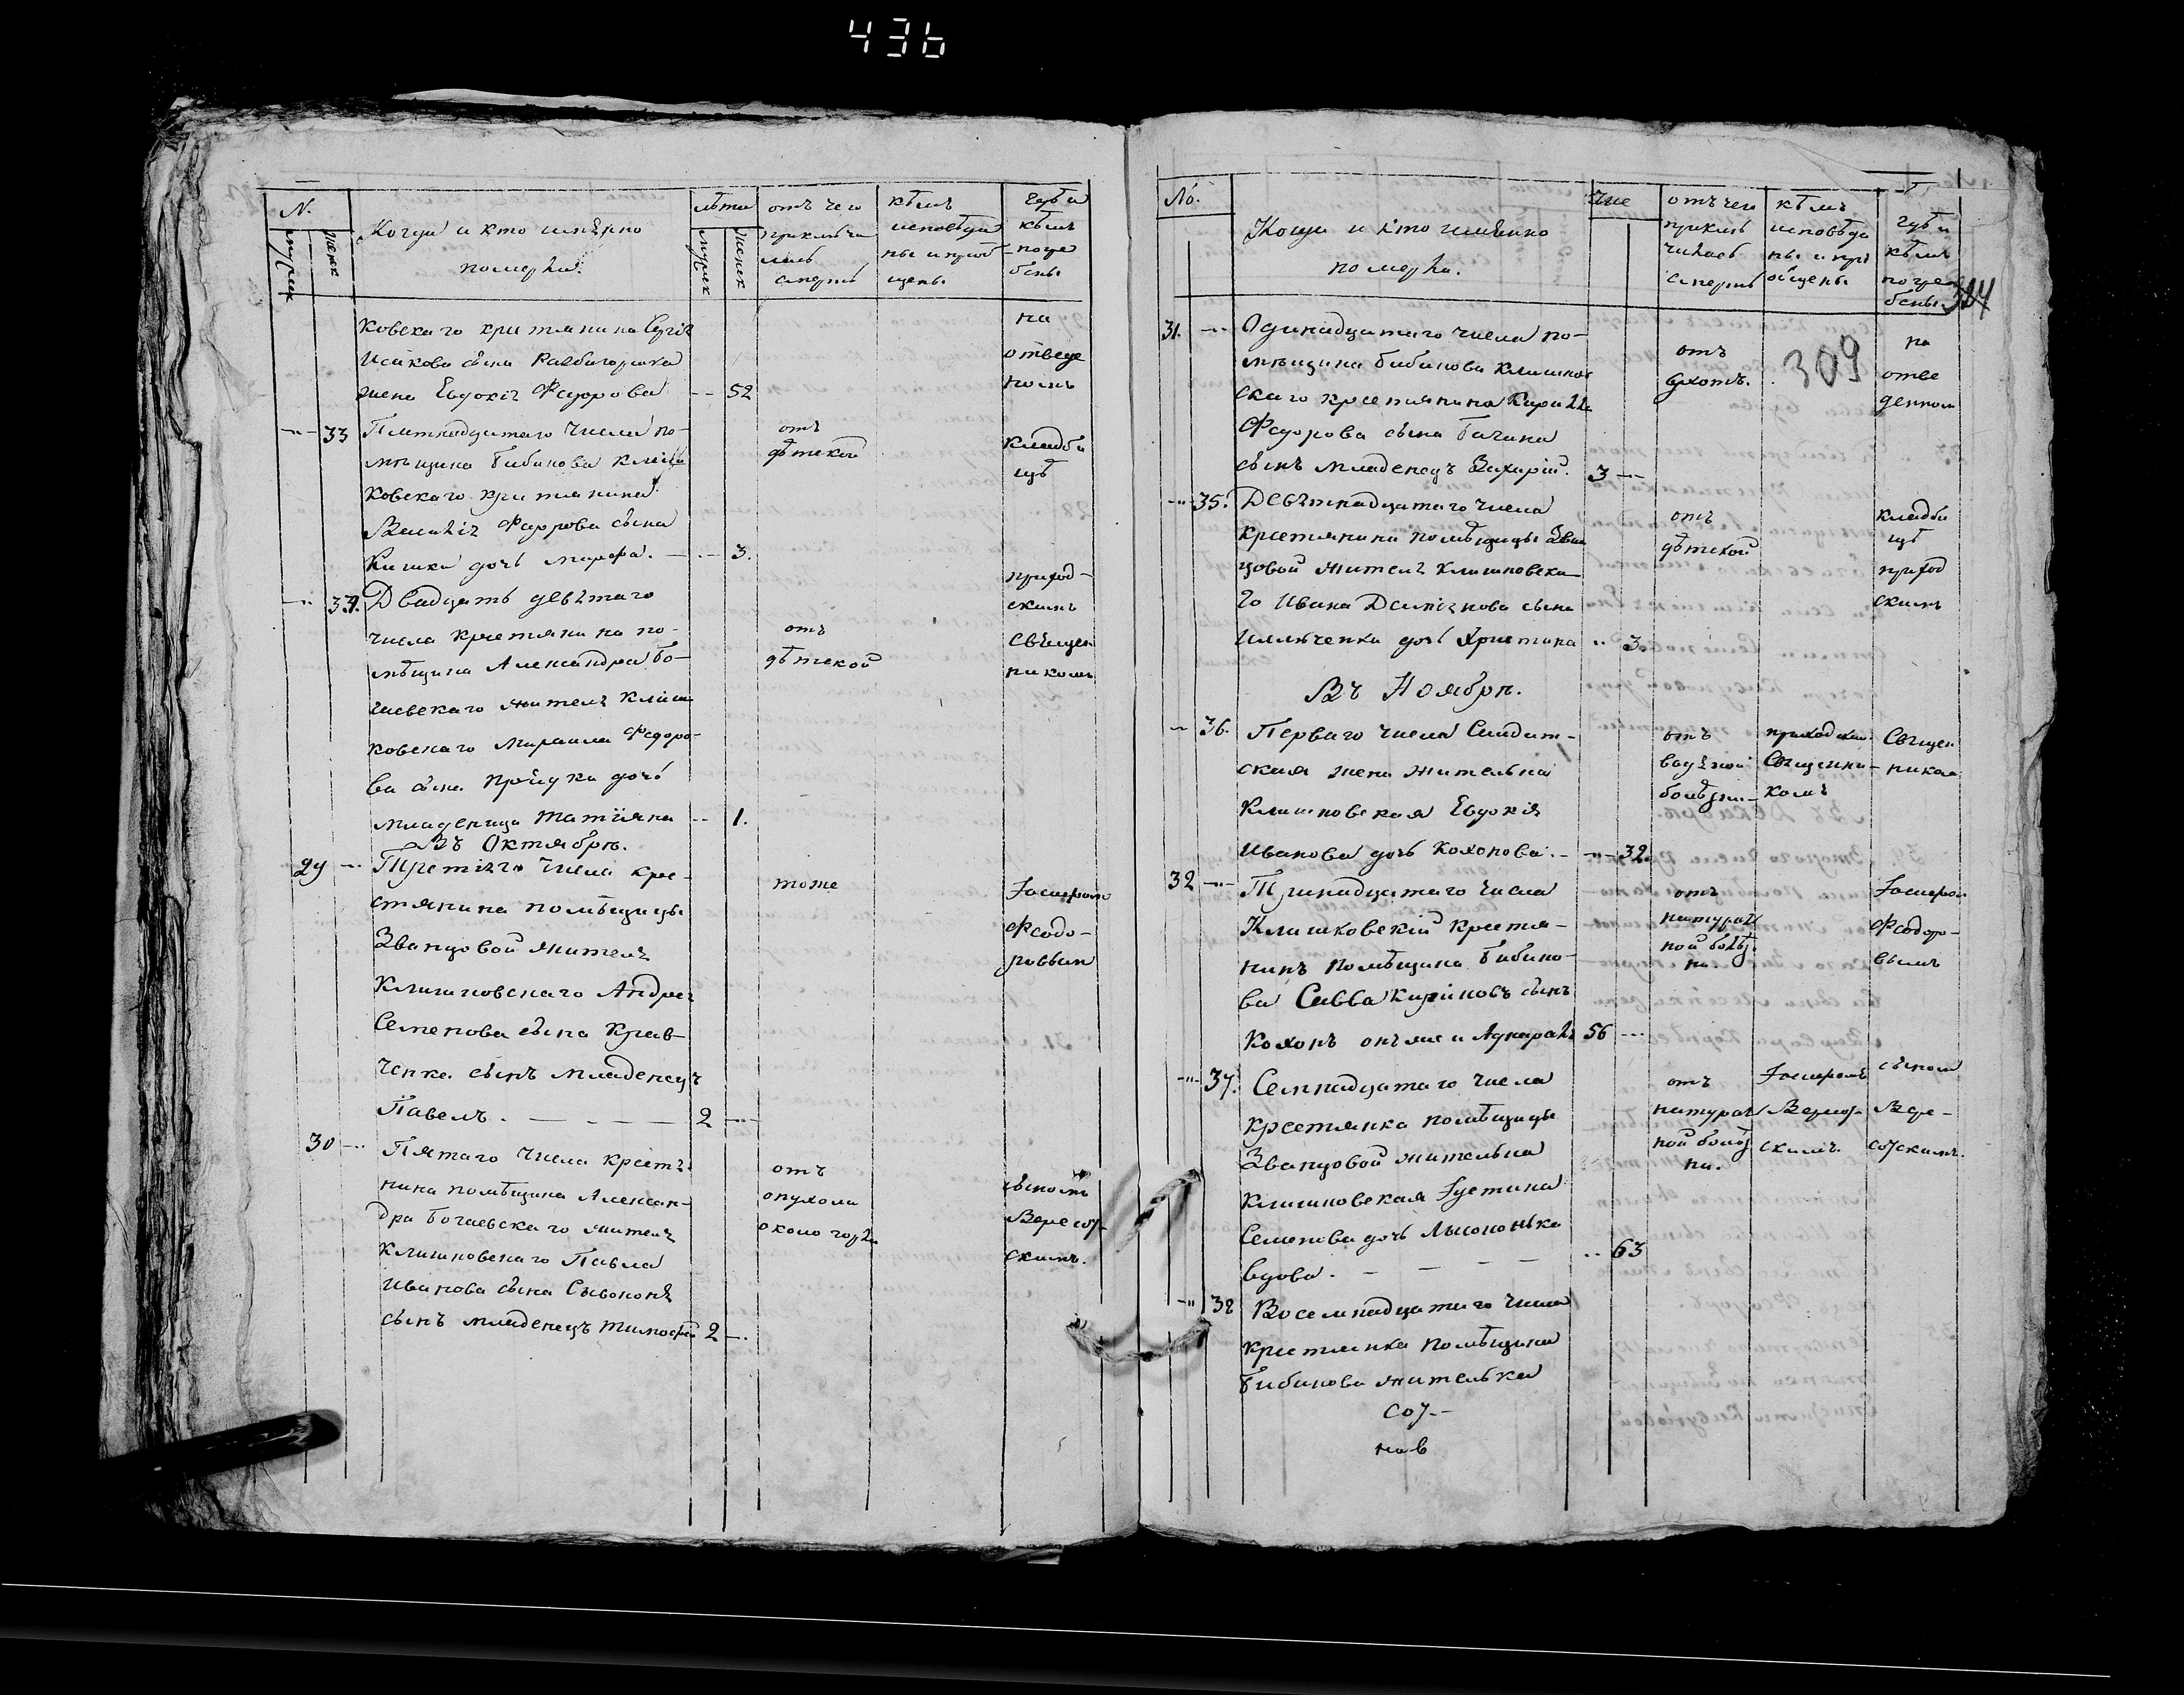 436
N.
Когда и кто имянно
померли.
лѣта
отъ чего
приключи
лась
смерть
кѣмъ
исповѣда
ны и прiоб
щены
Гдѣ и
кѣмъ
погре
бены
мужск
женск
мужск
женск
ковскаго крестянина Сергiя
Исакова сына
жена Евдокiя Федорова -- 52
на
отведе
номъ
--- 33 Пятнадцатаго числа по-
мѣщика Бибикова Клиш
ковскаго крестянина
Василiя Федорова сына
дочь Марфа. --- 3.
отъ
дѣтской
кладби
щѣ
--- 34. Двадцать девятаго
числа крестянина по-
мѣщика Александра Бо-
чаевскаго жителя Клиш
ковскаго Михаила Федоро-
ва сына дочь
младеница Татiяна -- 1.
отъ
дѣтской
приход-
скимъ
Священ
никомъ
Въ Октябрѣ.
29 --- Третiяго числа кре-
стянина помѣщицы
Званцовой жителя
Клишковскаго Андрея
Семенова сына Крав-
ченка сынъ младенецъ
Павелъ. - - - - 2 ---
тоже
Iосифомъ
Феодо-
ровым
30 --- Пятаго числа крестя
нина помѣщика Алексан-
дра Бочаевскаго жителя
Клишковскаго Павла
Иванова сына
сынъ младенецъ Тимофей 2 --
отъ
опухоли
около горла
сыномъ
Вересоч-
скимъ.
No.
Когда и кто имянно
померли.
отъ чего
приклю
чилась
смерть
кѣмъ
исповѣда
ны и прi
общены
гдѣ и
кѣмъ
погре
бены
314
309
31. --- Одинадцатаго числа по-
мѣщика Бибикова Клишков
скаго крестянина Кирилла
Федорова сына
сынъ младенецъ Захарiй. 3 ---
отъ
сухотъ.
на
отве
денном
--- 35. Девятнадцатаго числа
крестянина помѣщицы Зван
цовой жителя Клишковска
го Ивана Демянова сына
дочь Христина -- 3.
отъ
дѣтской
кладби
щѣ
приход
скимъ
Въ Ноябрѣ.
-- 36. Перваго числа Солдат-
ская жена жителька
Клишковская Евдокiя
Иванова дочь Кохонова. --- 32.
отъ
водяной
болѣзни
приходским
Священни-
комъ
Священ
ником
32 --- Тринадцатаго числа
Клишковскiй крестя-
нинъ помѣщика Бибико-
ва Савва Кириловъ сынъ
Кохонъ онъ же и 56 ---
отъ
натурал
ной болѣз
ни.
Iосифом
Феодоро-
вымъ
--- 37. Семнадцатаго числа
крестянка помѣщицы
Званцовой жителька
Клишковская Iустина
Семенова дочь
вдова. - - - - -- 63
отъ
натурал
ной болѣз
ни.
Iосифомъ
Вересоч-
скимъ.
сыном
Вере-
сочскимъ.
--- 38 Восемнадцатаго числа
крестянка помѣщика
Бибикова жителька